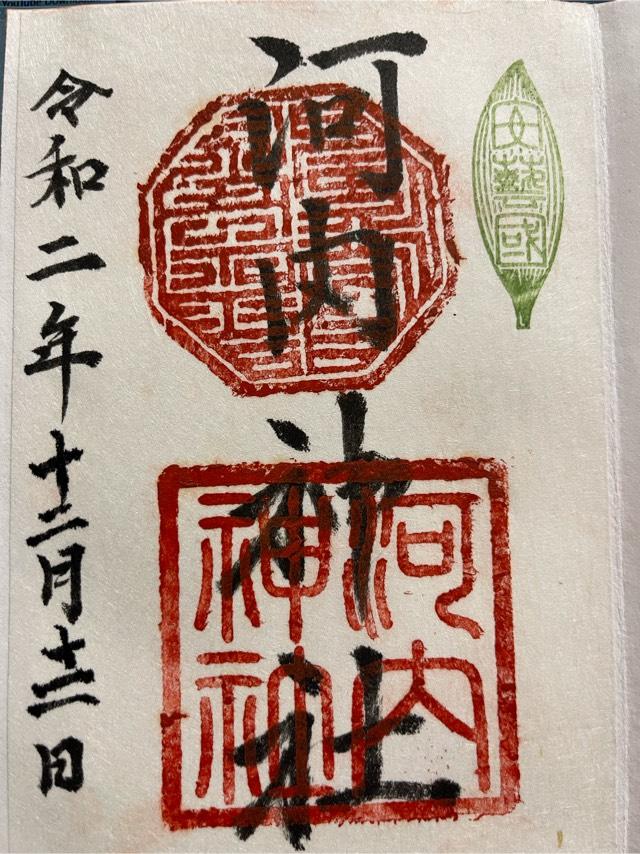 文藝國
河内神社
河内
神
令和二年十二月十二日
YouTube